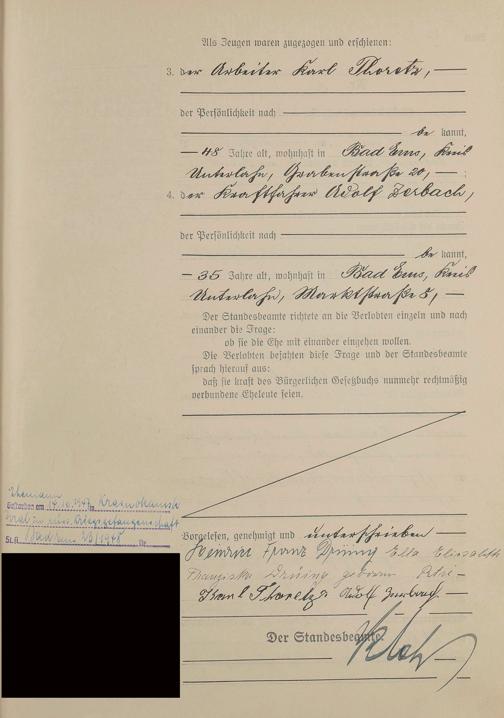 Als Zeugen waren zugezogen und erschienen:
3. der Arbeiter Karl Thoretz,
der Persönlichkeit nach
be kannt,
48 Jahre alt, wohnhaft in Bad Ems, Kreis
Unterlahn, Grabenstraße 20, ;
4. der Kraftfahrer Adolf Zerbach,
der Persönlichkeit nach
be kannt,
35 Jahre alt, wohnhaft in Bad Ems, Kreis
Unterlahn, Marktstraße 8,
Der Standesbeamte richtete an die Verlobten einzeln und nach
einander die Frage:
ob sie die Ehe mit einander eingehen wollen.
Die Verlobten bejahten diese Frage und der Standesbeamte
sprach hierauf aus:
daß sie kraft des Bürgerlichen Gesetzbuchs nunmehr rechtmäßig
verbundene Eheleute seien.
Ehemann
Gestorben am in
in russ. Kriegsgefangenschaft
St.A. Bad Ems /1948 Nr.
Vorgelesen, genehmigt und unterschrieben
Franz Ella Elisabeth
Franziska geborene
Karl Thoretz Adolf Zerbach.
Der Standesbeamte.